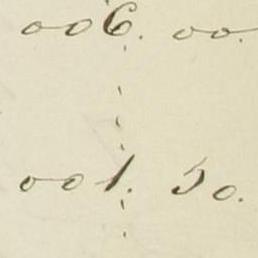 006. 00.
001. 50.